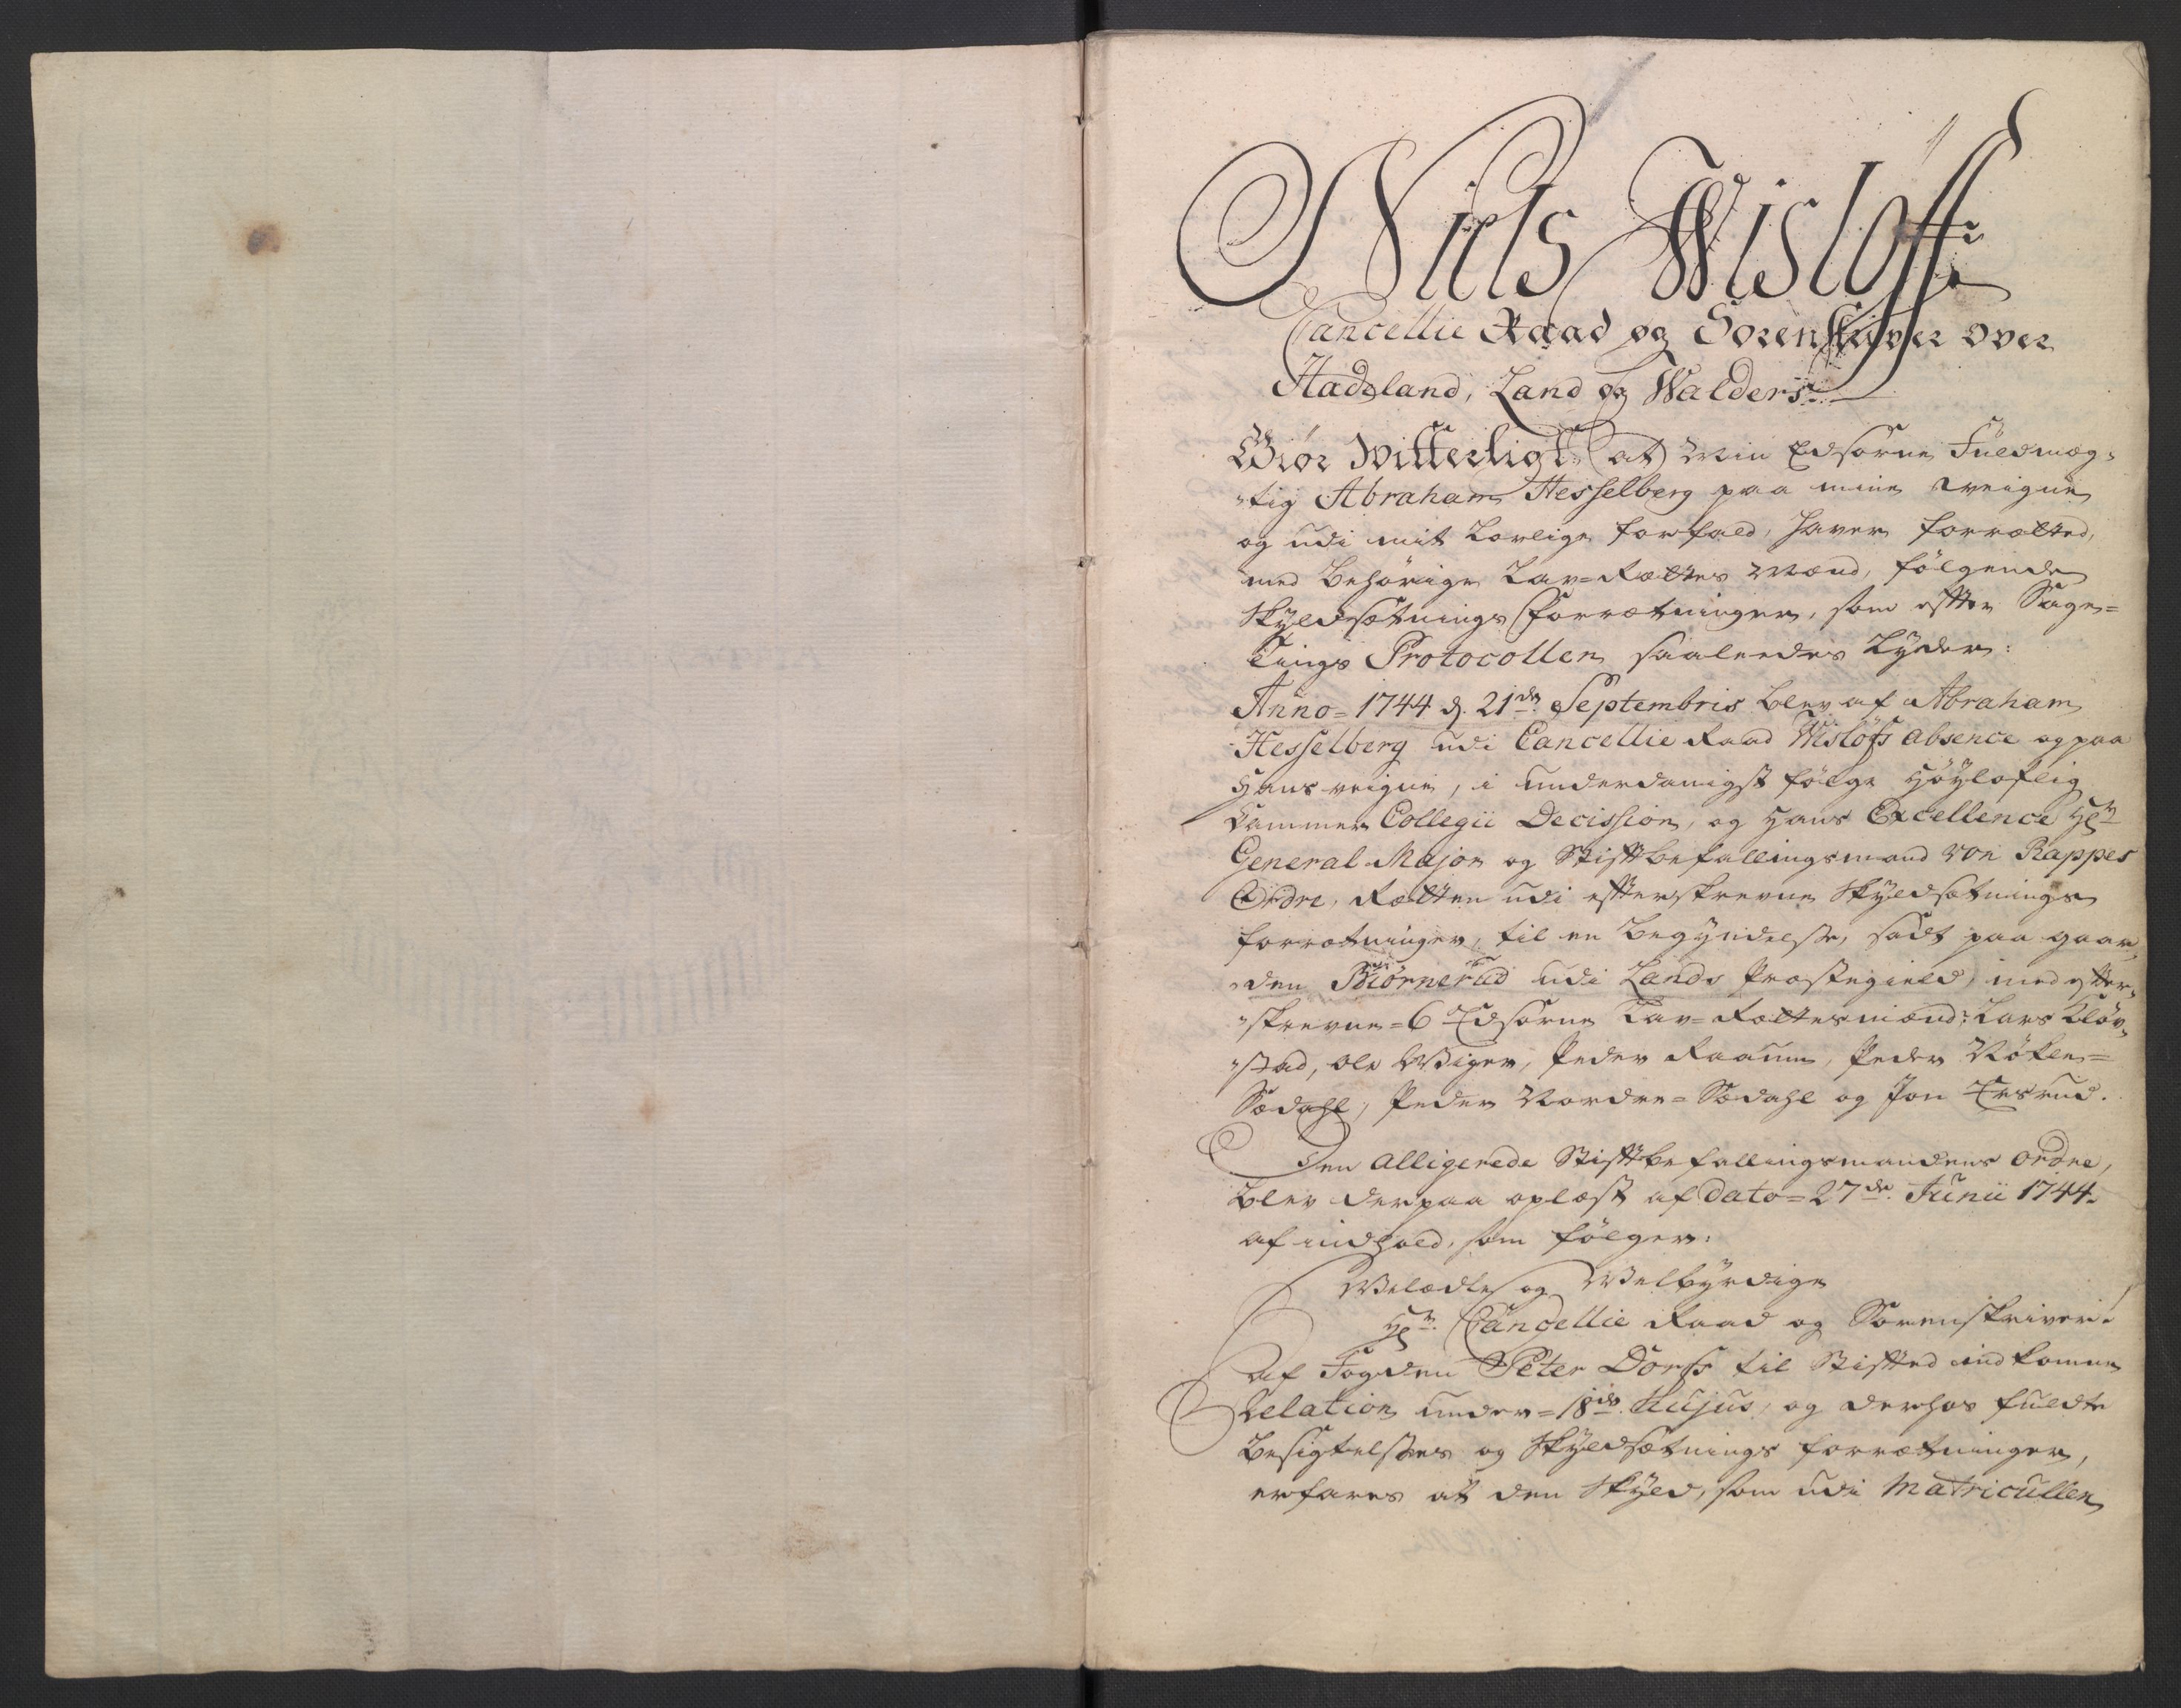 Niels Wisløff
Cancellie Raad og Sorenskriver over
Hadeland, Land og Walders
Giør Witterligt, at Min Edsorne Fuldmæg-
tig Abraham Hesselberg paa mine veigne
og udi mit Lovlige forfald, haver forrætted,
med Behørige Lav-Rættes Mænd, følgende
Skyldsætnings Forrætninger, som effter Sage-
tings Protocollen saaleedes Lyder:
Anno 1744 d. 21de Septembris blev af Abraham
Hesselberg udi Cancellie Raad Wisløfs absence og paa
Hans veigne, i underdanigst følge Høyloflig
Cammer Collegii Decission, og Hans Excellence Hr
General-Major og Stiftbefallingsmand von Rappes
Ordre, Rætten udi effterskrevne Skyldsætnings
forrætninger, til en Begyndelse, sadt paa gaar-
den Biørnerud udi Lands Præstegield, med effter-
skrevne 6 Edsorne Lav-Rættesmænd: Lars Kløv-
stad, Ole Wiger, Peder Raaum, Peder Nøkle-
Sødahl, Peder Nordre-Sødahl og Jon
Den alligerede Stiftbefallingsmandens ordre,
blev derpaa oplæst af dato 27de Junii 1744
af indhold, som følger:
Velædle og Welbyrdige
Hr. Cancellie Raad og Sorenskriver.
Af Fogden Peter Dorff til Stifted indkomne
Relation under 18de hujus, og derhos fuldte
Besigtelses og Skyldsætnings forrætninger,
erfares at den Skyld, som udi Matricullen